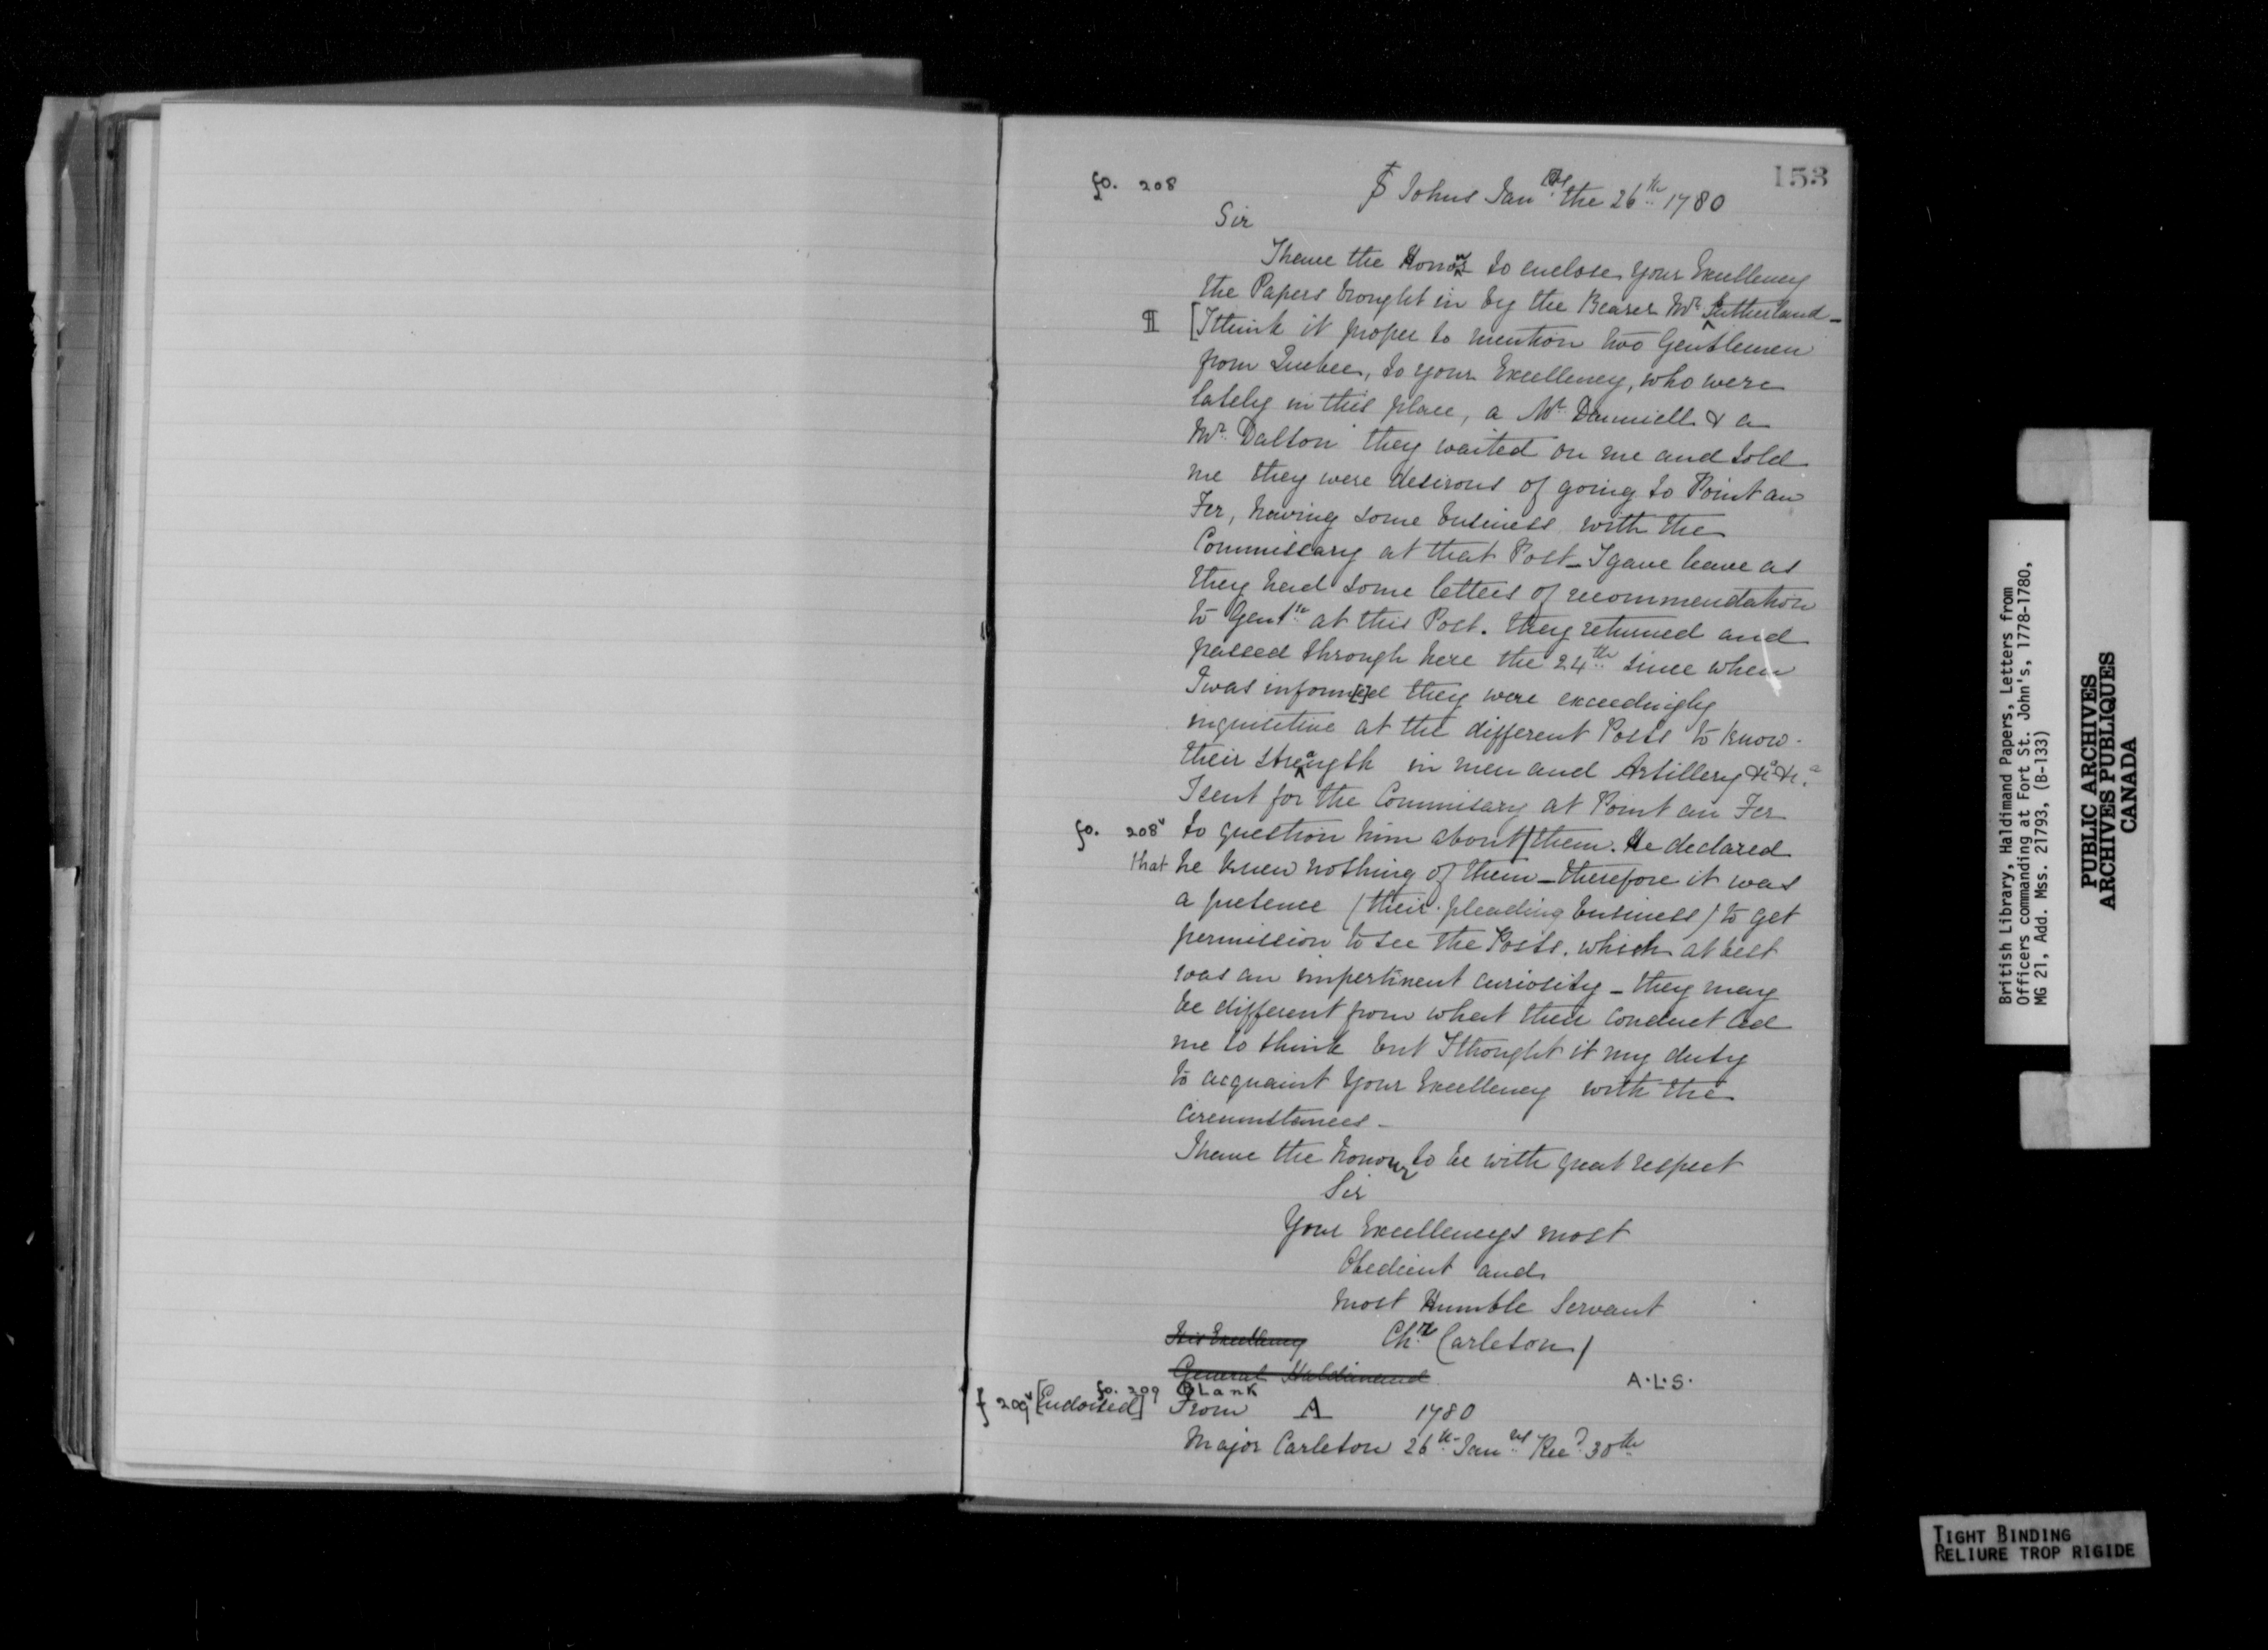 153
fo. 208
St Johns Jan.ry the 26th 1780
Sir
I have the Honor to enclose your Excellency
the Papers brought in by the Bearer Mr. Sutherland_
¶ [I think it proper to mention two Gentlemen
from Quebec, to your Excellency, who were
lately in this place, a Mr. Danniell & a
Mr. Dalton they waited on me and told
me they were desirous of going to Point au
Fer, having some business with the
Commissary at that Post_ I gave leave as
they had some letters of recommendation
to Gentn at this Post. they returned and
passed through here the 24th since when
I was inform[e]d they were exceedingly
inquisitive at the different Posts to know
their strength in men and Artillery &ca &ca
I sent for the Commisary at Point au Fer
fo. 208v to question him about / them. He declared
that he knew nothing of them_therefore it was
a pretence (their pleading business) to get
permission to see the Posts. which at best
was an impertinent curiosity_ they may
be different from what their conduct led
me to think but I thought it my duty
to acquaint your Excellency with the
circumstances_
I have the honour to be with great respect
Sir
Your Excellencys most
Obedient and
most Humble Servant
His Excellency Chr Carleton /
General Haldimand
A.L.S.
fo. 209 Blank
f 209v [Endorsed] From A 1780
Major Carleton 26th Janry Recd 30th
British Library, Haldimand Papers, Letters from
Officers commanding at Fort St. John's, 1778-1780,
MG 21, Add. Mss. 21793, (B-133)
PUBLIC ARCHIVES
ARCHIVES PUBLIQUES
CANADA
TIGHT BINDING
RELIURE TROP RIGIDE